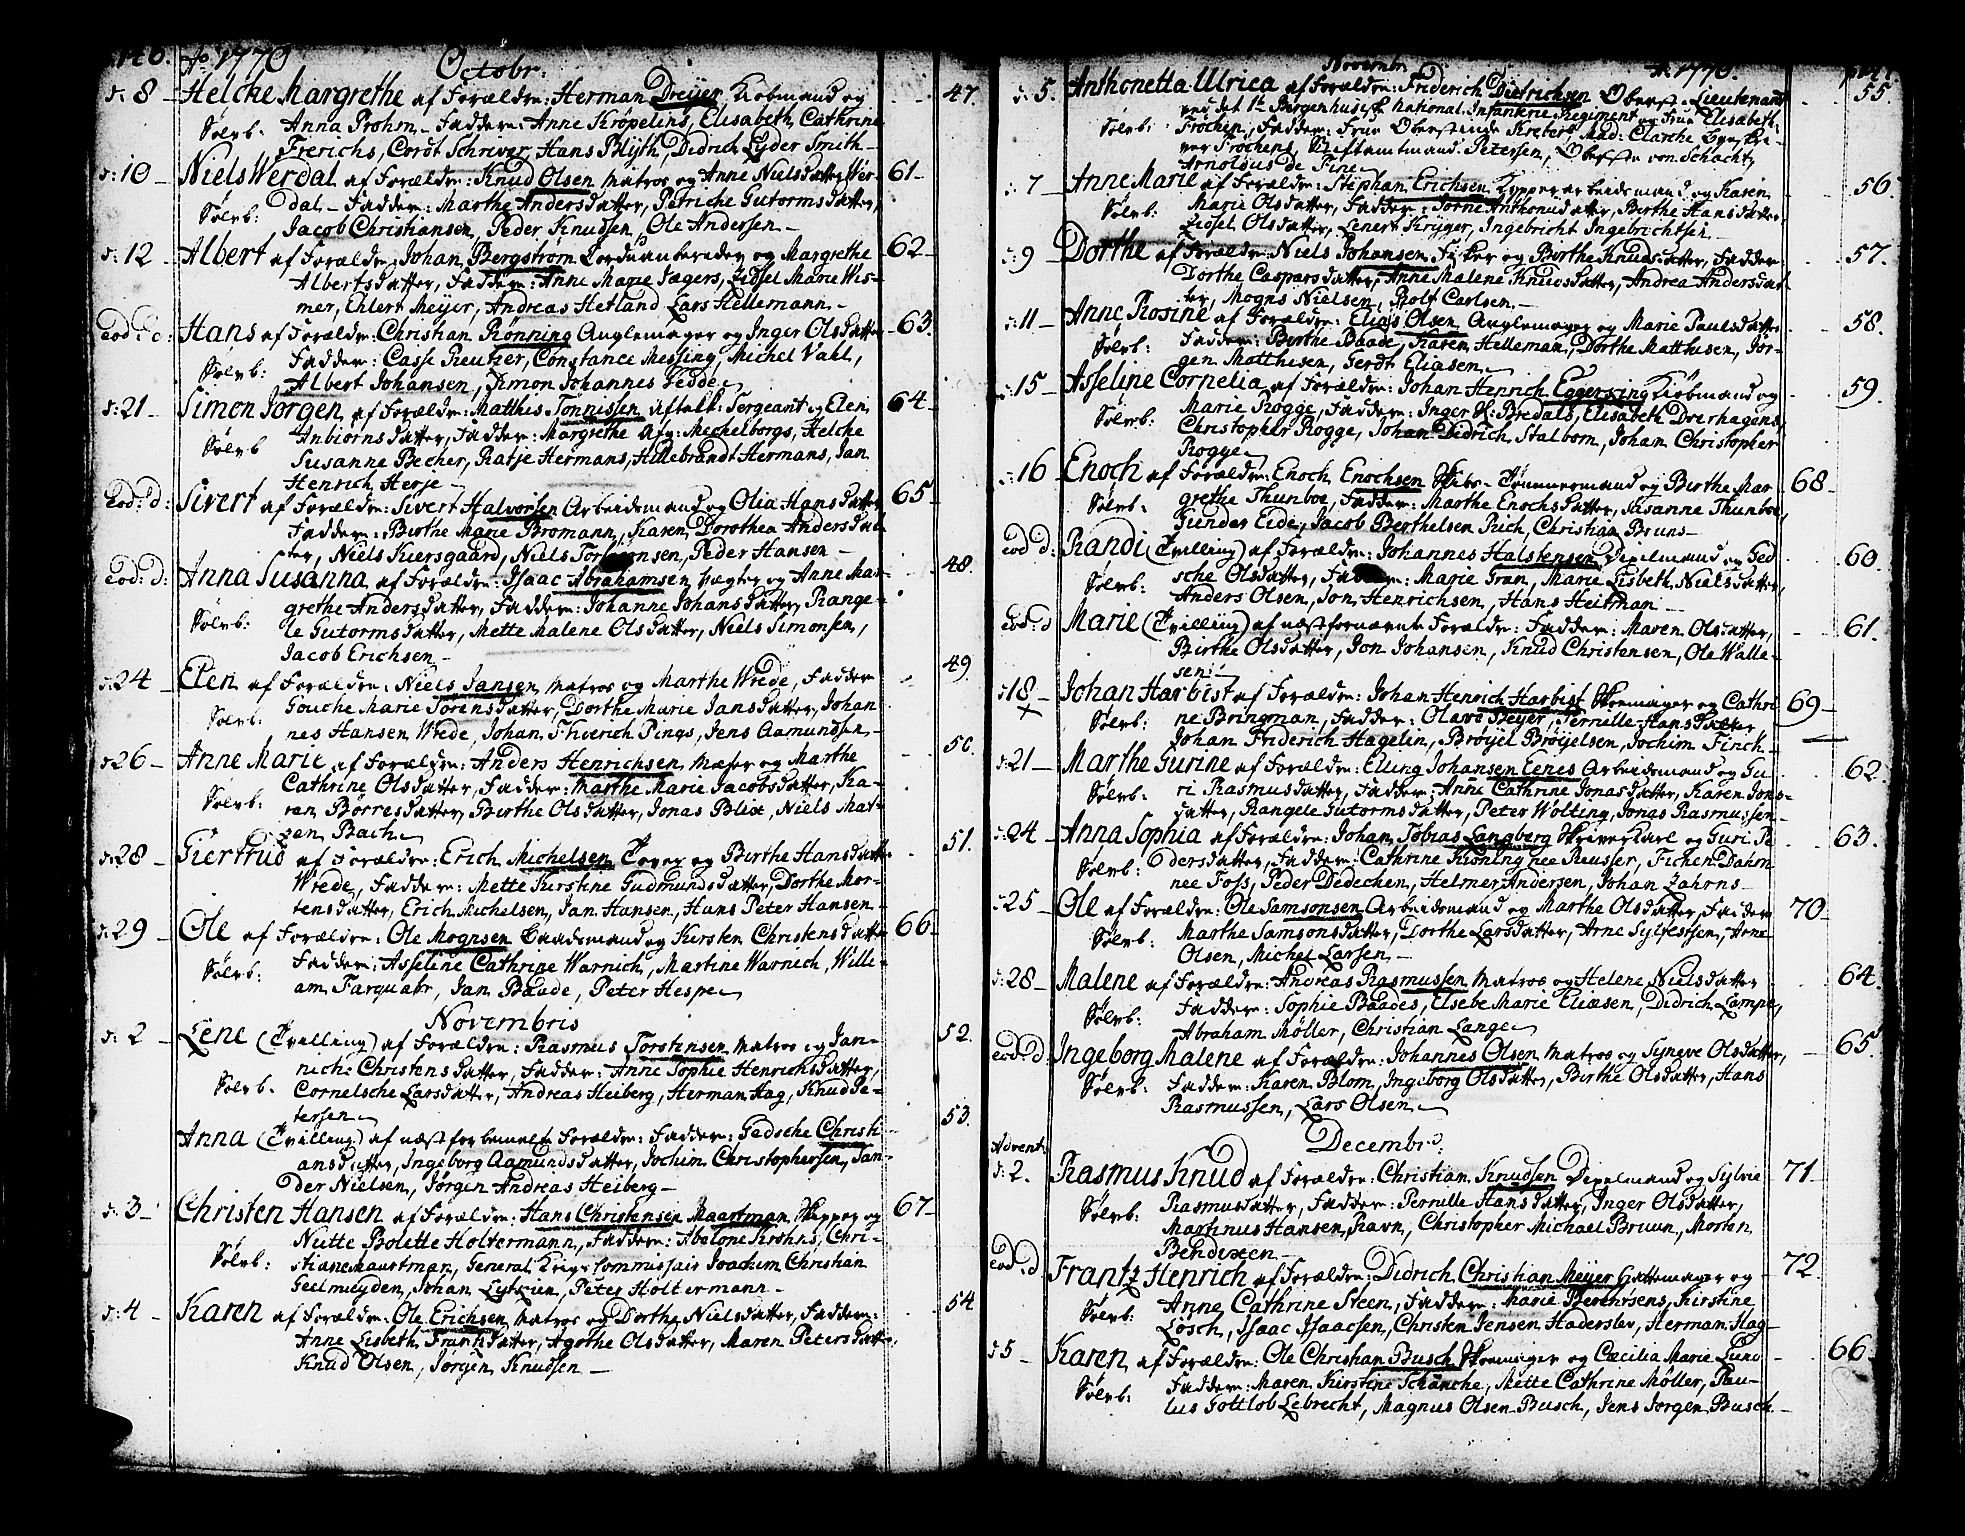 146. Ao 1770 Octobr.
d: 8 – Helche Margrethe af Forældre: Herman Dreyer Kiøbmand og 47.
Sølvb: Anna Prohm – Faddere: Anne Kröpelins, Elisabeth Cathrine
Frerichs, Corot Schriver, Hans Blyth, Didrich Lyder Smith –
d: 10 – Niels Werdal af Forældre: Knud Olsen Matros og Anne Nielsdatter Wer- 61
Sølvb: dal – Faddere: Marthe Andersdatter, Petriche Gutormsdatter,
Jacob Christiansen, Peder Knudsen, Ole Andersen –
d: 12 Albert af Forældre: Johan Bergstrøm og Margrethe 62
Albertsdatter, Faddere: Anne Marie Jægers, Zidsel Marie Wis-
mer, Ehlert Meyer, Andreas Hetland Lars Hellemann –
Eod: d: Hans af Forældre: Christian Rønning Anglemager og Inger Olsdatter 63.
Sølvb: Faddere: Casse Creutzer, Constance Messing, Michel Vahl,
Albert Johansen, Simon Johannes Fedde
d: 21 – Simon Jørgen af Forældre: Matthis Tønnissen Aftak: Sergeant og Elen 64
Sølvb Anbiørnsdatter, Faddere: Margrethe Mechelborgs, Helche
Susanne Becher, Ratje Hermans, Hillebrandt Hermans, Jan
Henrich Herje –
Eod: d: Sivert af Forældre: Sivert Halvorsen Arbeidsmand og Olia Hansdatter 65
Faddere: Birthe Marie Bromann, Karen Dorothea Andersdat
ter, Niels Kiersgaard, Niels Peder Hansen –
Eod: d: Anna Susanna af Forældre: Isaac Abrahamsen Vægter og Anne Mar- 48.
Sølvb: grethe Andersdatter, Faddere: Johanne Johansdatter, Range-
le Gutormsdatter, Mette Malene Olsdatter, Niels Simonsen,
Jacob Erichsen –
d: 24 Elen af Forældre: Niels Jansen Matros og Marthe Wrede, Faddere 49.
Sølvb: Gouche Marie Sørensdatter, Dorthe Marie Jansdatter, Johan
nes Hansen Wrede, Johan Thierich Pings, Jens Aamundsen –
d: 26 – Anne Marie af Forældre: Anders Henrichsen og Marthe 50.
Sølvb: Cathrine Olsdatter, Faddere: Marthe Marie Jacobsdatter, Ka-
ren Børresdatter, Birthe Olsdatter, Jonas Blix, Niels Mat-
zen Bach
d: 28 Giertrud af Forældre: Erich Michelsen og Birthe Hansdatter 51.
Wrede, Faddere: Mette Kirstine Gudmundsdatter, Dorthe Mor-
tensdatter, Erich Michelsen, Jan Hansen, Hans Peter Hansen –
d: 29 – Ole af Forældre: Ole Mognsen Baadsmand og Kirsten Christensdatter 66
Sølvb: Faddere: Asseline Cathrine Warnich, Mastine Warnech, Willi-
am Farquahr, Jan Baade, Peter Hespe
Novembris
d: 2 Lene (Tvilling) af Forældre: Rasmus Torstensen Matros og Jan- 52.
Sølvb: niche Christensdatter, Faddere: Anne Sophie Henrichsdatter,
Cornelsche Larsdatter, Andreas Heiberg, Herman Hag, Knud Pe-
tersen
Anna (Tvilling) af næstforbemelte Forældre: Faddere: Gedsche Christi- 53.
ansdatter, Ingeborg Aamundsdatter, Jochim Christophersen, San-
der Nielsen, Jørgen Andreas Heiberg –
d: 3 – Christen Hansen af Forældre: Hans Christensen Maartman Skipper og 67
Sølvb: Nutte Bolette Holtermann, Faddere: Abelone Krohns, Chri-
stiane Maartman, General Krigs Commissair Joachim Christian
Geelmuyden, Johan Lytzien, Peter Holtermann –
d: 4 – Karen af Forældre: Ole Erichsen Matros og Dorthe Nielsdatter, Faddere: 54
Anne Lisbeth Frantzdatter, Agothe Olsdatter, Maren Petersdatter,
Knud Olsen, Jørgen Knudsen –
Novembr. Ao 1770. 147
d: 5. Anthonetta Ulrica af Forældre: Friderich Dietrichsen Oberst-Lieutenant 55.
ved det 1te Bergenhusiske National Infanterie Regiment og Frue Elisabeth
Sølvb: Frochen, Faddere: Frue Oberstinde Mad: Clarche
Frochens, Stiftamtmand Petersen, Oberste von Schacht,
Arnoldus de Fine
d: 7 Anne Marie af Forældre: Stephan Erichsen arbeidsmand og Karen 56
Sølvb: Marie Olsdatter, Faddere: Sørne Anthonisdatter, Birthe Hansdatter,
Zidsel Olsdatter, Lenert Kryger, Ingebricht Ingebrichtsen
d: 9 Dorthe af Forældre Niels Johansen Fisker og Birthe Knudsdatter, Faddere: 57.
Dorthe Caspersdatter, Anne Malene Knudsdatter, Andrea Andersdat
ter, Mogns Nielsen, Rolf Carlsen –
d: 11 – Anne Rosine af Forældre: Elias Olsen Anglemager og Marie Paulsdatter 58.
Sølvb: Faddere: Birthe Baade, Karen Helleman, Dorthe Matthesen, Jør-
gen Matthesen, Gerdt Eliasen
d: 15 Asseline Cornelia af Forældre: Johan Henrich Eggerking Kiøbmand og 59.
Sølvb: Marie Rogge, Faddere: Inger Bredals, Elisabeth Dverhagens,
Christopher Rogge, Johan Didrich Stalborn, Johan Christopher
Rogge
d: 16 Enoch af Forældre: Enoch Enochsen Skibs-Tømmermand og Birthe Mar- 68
Sølvb: grethe Thunboe, Faddere: Marthe Enochsdatter, Susanne Thunboe,
Giender Eide, Jacob Berthelsen Rich, Christian Bruns –
eod d: Randi (Tvilling) af Forældre: Johannes Halstensen Depelmand og Ged 60.
Sølvb: sche Olsdatter, Faddere: Marie Gran, Marie Lisbeth Nielsdatter,
Anders Olsen, Jon Henrichsen, Hans Heitman –
eod: d Marie (Tvilling) af næstfornævnte Forældre: Faddere: Maren Olsdatter, 61.
Birthe Olsdatter, Jon Johansen, Knud Christensen, Ole Walle-
sen
d: 18 – Johan Harbist af Forældre: Johan Henrich Harbist Skoemager og Cathri 69
Sølvb: ne Bringman, Faddere: Olave Beyer, Pernille Hansdatter
Johan Friderich Hagelin, Brøyel Brøyelsen, Jochim Finch –
d: 21 – Marthe Gurine af Forældre: Elling Johansen Eenes Arbeidsmand og Gu 62.
Sølvb: ri Rasmusdatter, Faddere: Anne Cathrine Jonasdatter, Karen Jons-
datter, Rangele Gutormsdatter, Peter Wolting, Jonas Rasmussen –
d: 24 Anna Sophia af Forældre: Johan Tobias Langberg Skriverkarl og Guri Pe 63.
Sølvb: dersdatter, Faddere: Cathrine Kisning nee Reusser, Fichen Dahm
nee Foss, Peder Dedechen, Helmer Andersen, Johan Zahrns –
d: 25 Ole af Forældre: Ole Samsonsen Arbeidsmand og Marthe Olsdatter, Faddere 70
Sølvb: Marthe Samsonsdatter, Dorthe Larsdatter, Arne Sylfestsen, Arne
Olsen, Michel Larsen –
d: 28 – Malene af Forældre: Andreas Rasmussen Matros og Helene Nielsdatter 64.
Sølvb: Faddere: Sophie Baades, Elsebe Marie Eliasen, Didrich Lampe,
Abraham Møller, Christian Lange
eod: d Ingeborg Malene af Forældre: Johannes Olsen Matros og Syneve Olsdatter, 65
Sølvb: Faddere: Karen Blom, Ingeborg Olsdatter, Birthe Olsdatter, Hans
Rasmussen, Lars Olsen
Advent: Decembr:
d: 2. Rasmus Knud af Forældre: Christian Knudsen Depelmand og Sylvie 71
Sølvb: Rasmusdatter, Faddere: Pernille Hansdatter, Inger Olsdatter,
Martinus Hansen Ravn, Christopher Michael Bruun, Morten
Bendixen –
eod: d Frantz Henrich af Forældre: Didrich Christian Meyer Hattemager og 72.
Sølvb: Anne Cathrine Steen, Faddere: Marie Berentsens, Kirstine
Losch, Isaac Isaacsen, Christen Jensen Haderslev, Herman Hag –
d 5 – Karen af Forældre: Ole Christian Busch Skoemager og Cæcilia Marie Lund 66
Sølvb: Faddere: Maren Kirstine Schancke, Mette Cathrine Møller, Pau-
lus Gottlob Lebrecht, Magnus Olsen Busch, Jens Jørgen Busch –